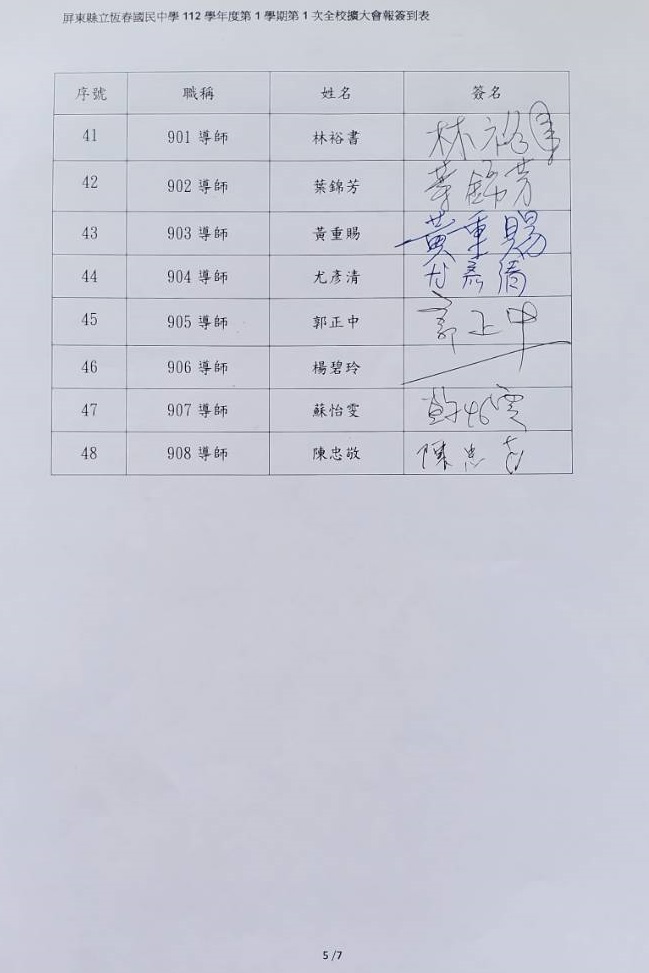 屏東縣立恆春國民中學 112 學年度第 1 學期第 1 次全校擴大會報簽到表
序號 職稱 姓名 簽名
41 901 導師 林裕書 林裕書
42 902 導師 葉錦芳 葉錦芳
43 903 導師 黃重賜 黃重賜
44 904 導師 尤彥清 尤彥清
45 905 導師 郭正中 郭正中
46 906 導師 楊碧玲
47 907 導師 蘇怡雯
48 908 導師 陳忠敬 陳忠敬
5 /7